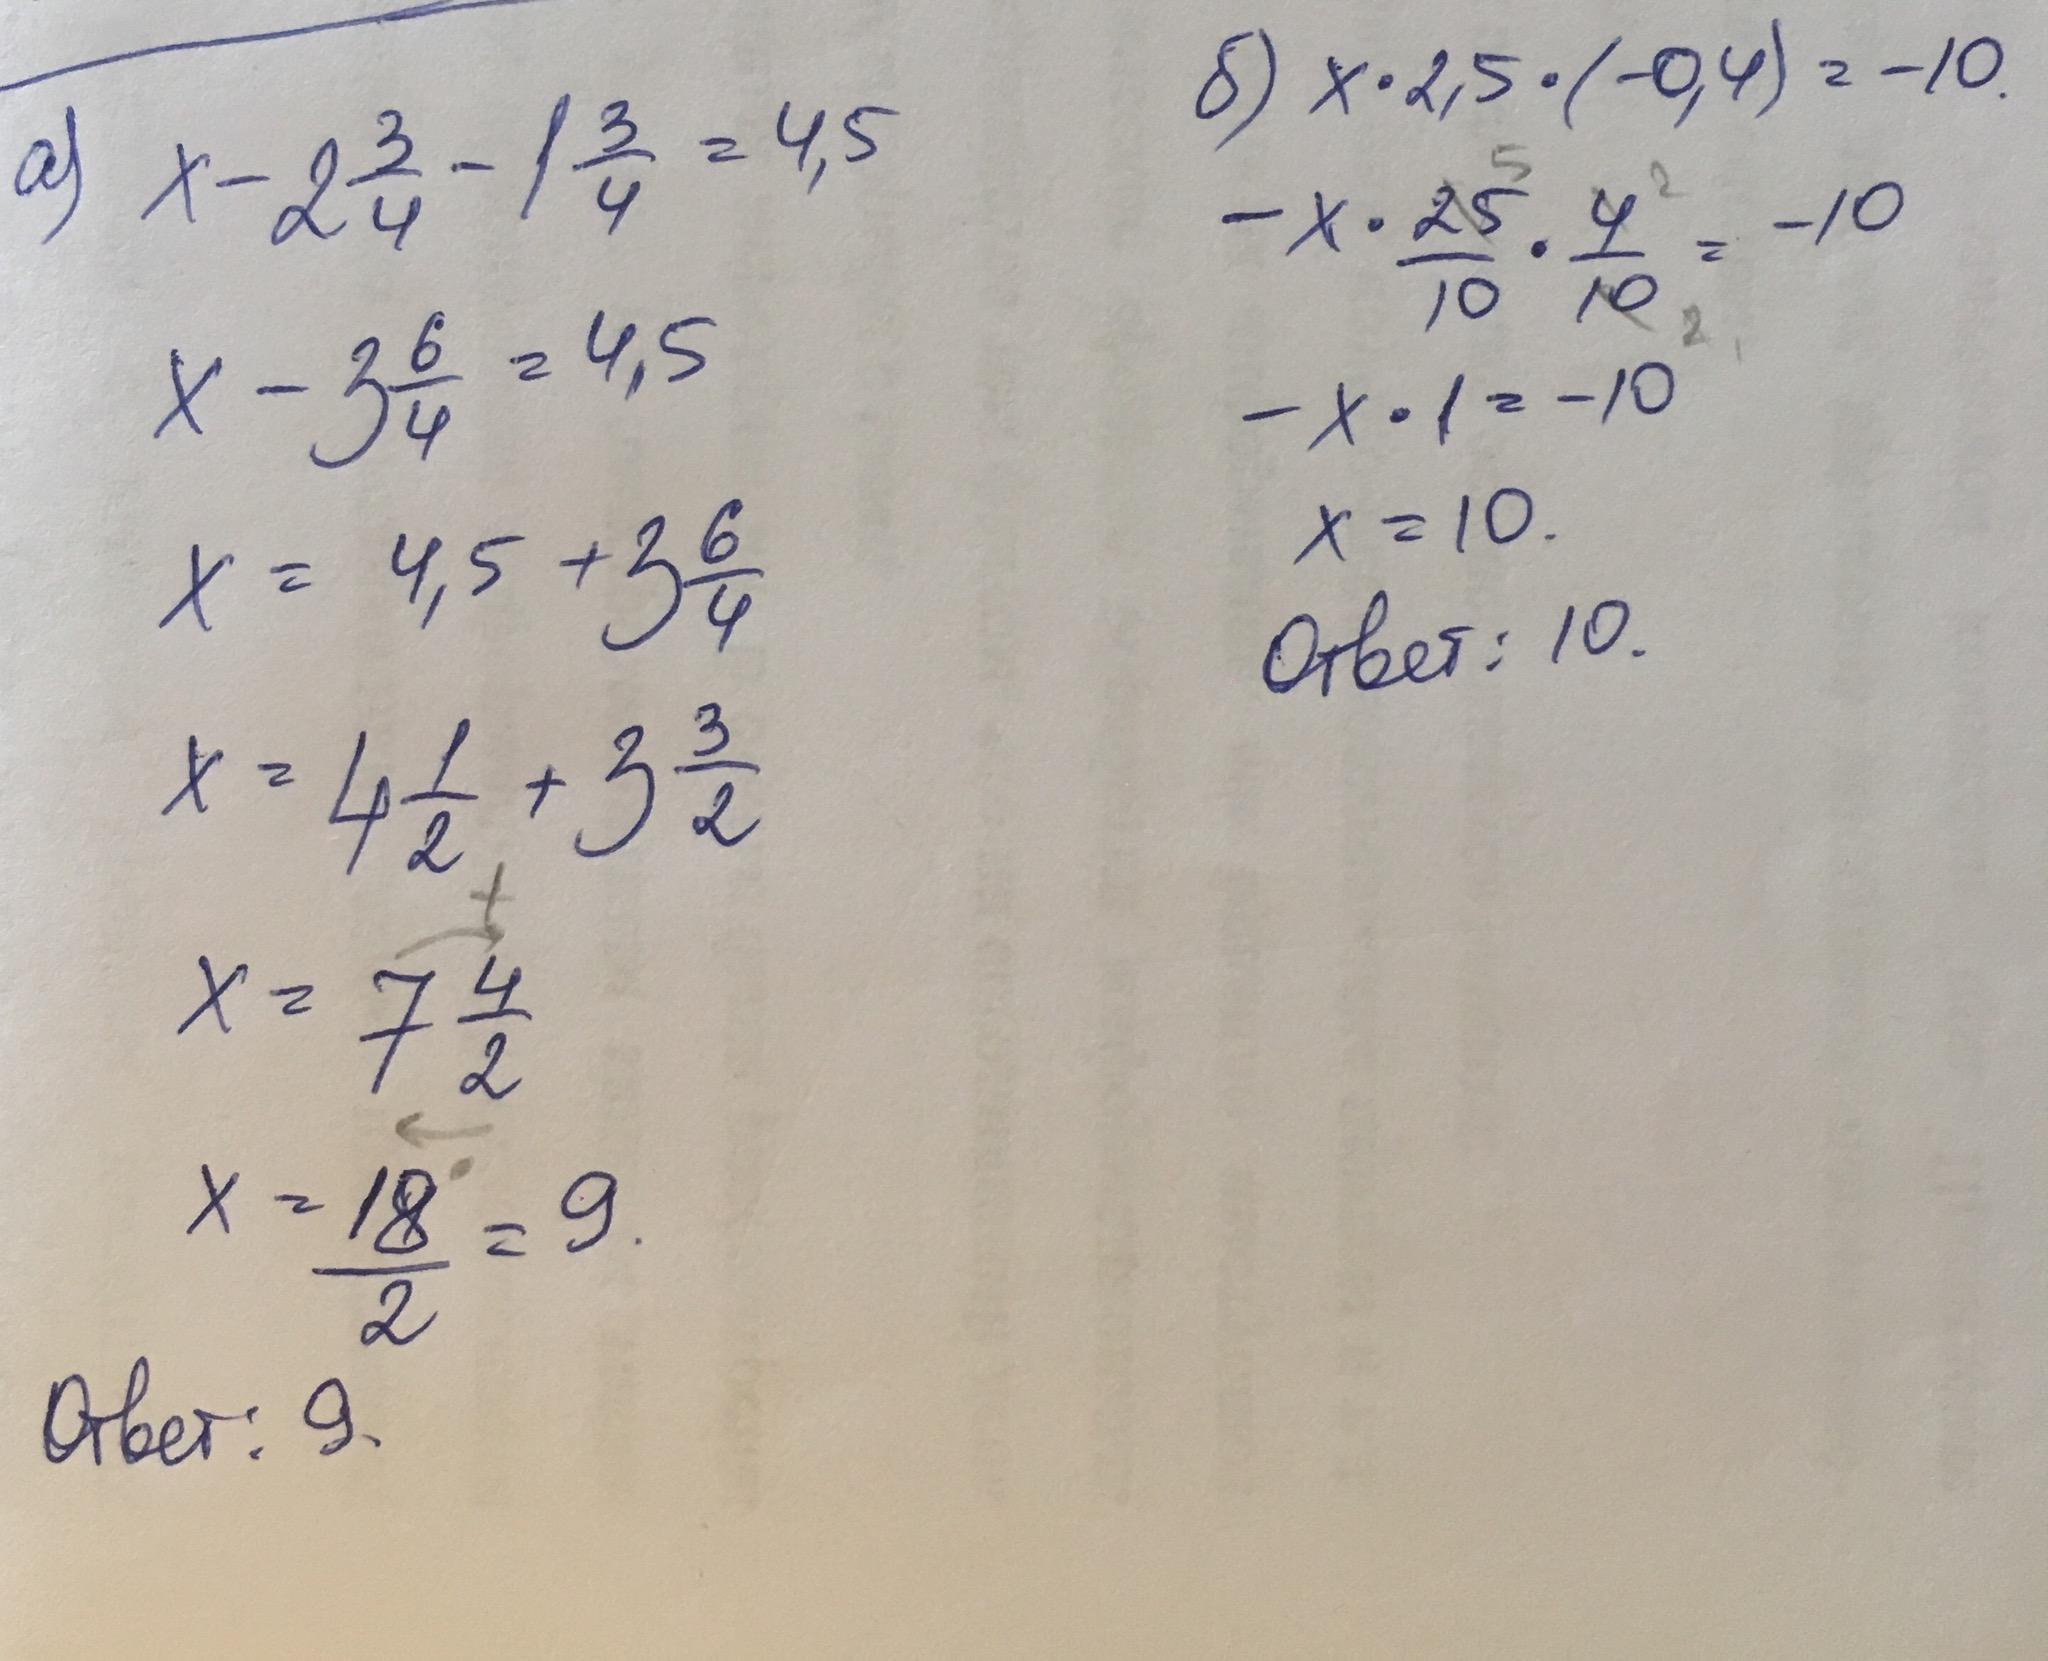 а) x - 2 3/4 - 1 3/4 = 4,5
x - 3 6/4 = 4,5
x = 4,5 + 3 6/4
x = 4 1/2 + 3 3/2
x = 7 4/2
x = 18/2 = 9.
Ответ: 9.
б) x · 2,5 · (-0,4) = -10.
- x · 25/10 · 4/10 = -10
- x · 1 = -10
x = 10.
Ответ: 10.